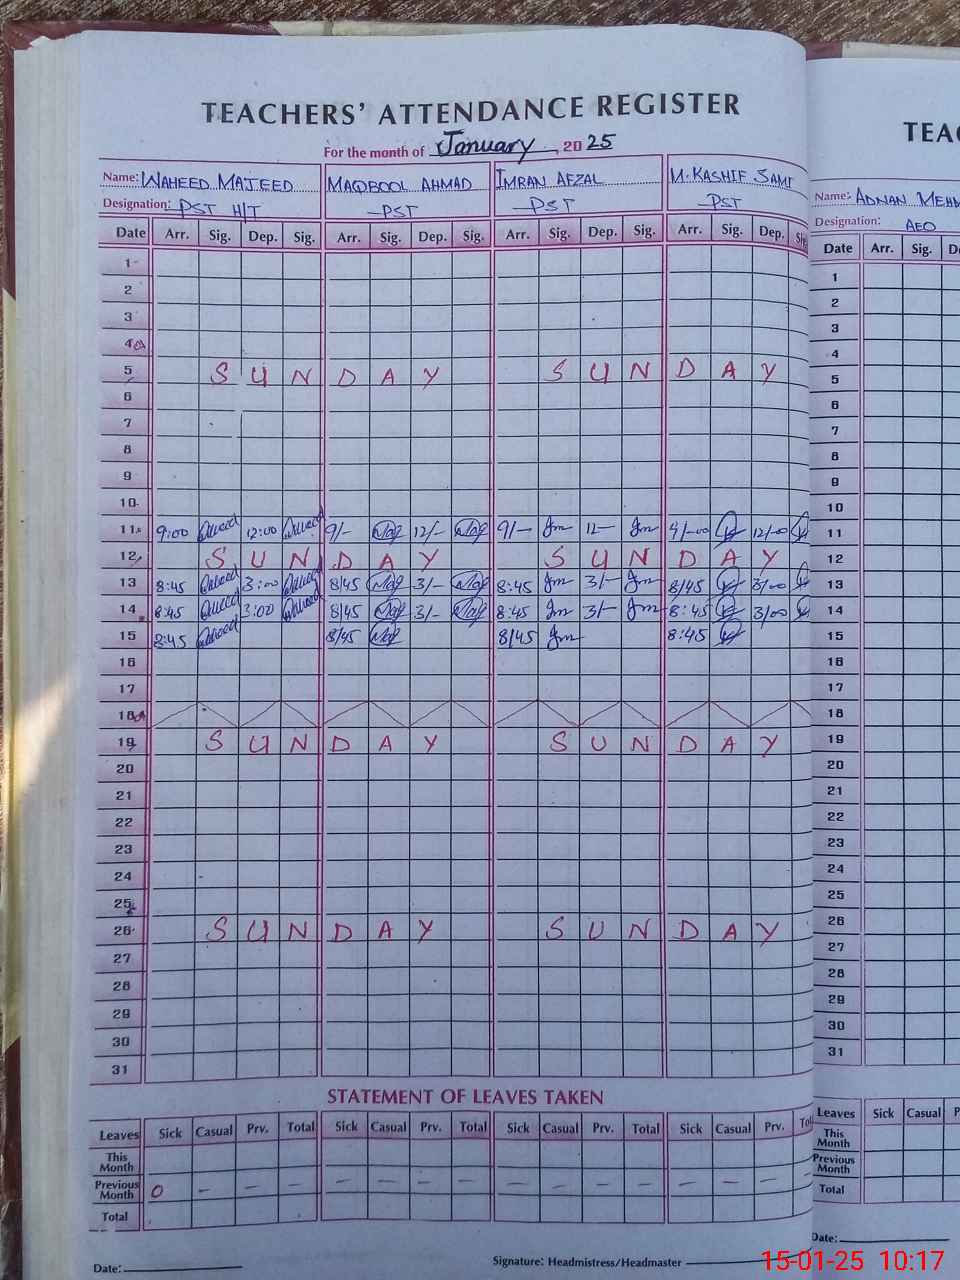 TEACHERS' ATTENDANCE REGISTER
For the month of January, 2025
Name: WAHEED MAJEED MAQBOOL AHMAD IMRAN AFZAL M. KASHIF SAMI
Designation: PST H/T PST PST PST
Date Arr. Sig. Dep. Sig. Arr. Sig. Dep. Sig. Arr. Sig. Dep. Sig. Arr. Sig. Dep. Sig
1
2
3
4
5 SUNDAY SUNDAY
6
7
8
9
10
11 9:00 12:00 9/- 12/- 9/- 12- 9/-00 12/-00
12 SUNDAY SUNDAY
13 8:45 3:00 8/45 3/- 8:45 3/- 8/45 3/00
14 8:45 3:00 8/45 3/- 8:45 3/- 8:45 3/00
15 8:45 8/45 8/45 8:45
16
17
18
19 SUNDAY SUNDAY
20
21
22
23
24
25
26 SUNDAY SUNDAY
27
28
29
30
31
STATEMENT OF LEAVES TAKEN
Leaves Sick Casual Prv. Total Sick Casual Prv. Total Sick Casual Prv. Total Sick Casual Prv. Tot
This Month
Previous Month 0 – – – – – – – – – – – – – –
Total
Date:
Signature: Headmistress/Headmaster
TEAC
Name: ADNAN MEHM
Designation: AEO
Date Arr. Sig. De
1
2
3
4
5
6
7
8
9
10
11
12
13
14
15
16
17
18
19
20
21
22
23
24
25
26
27
28
29
30
31
Leaves Sick Casual P
This Month
Previous Month
Total
Date:
15-01-25 10:17